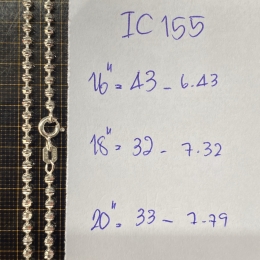 IC 155
16" = 43 - 6.43
18" = 32 - 7.32
20" = 33 - 7.79